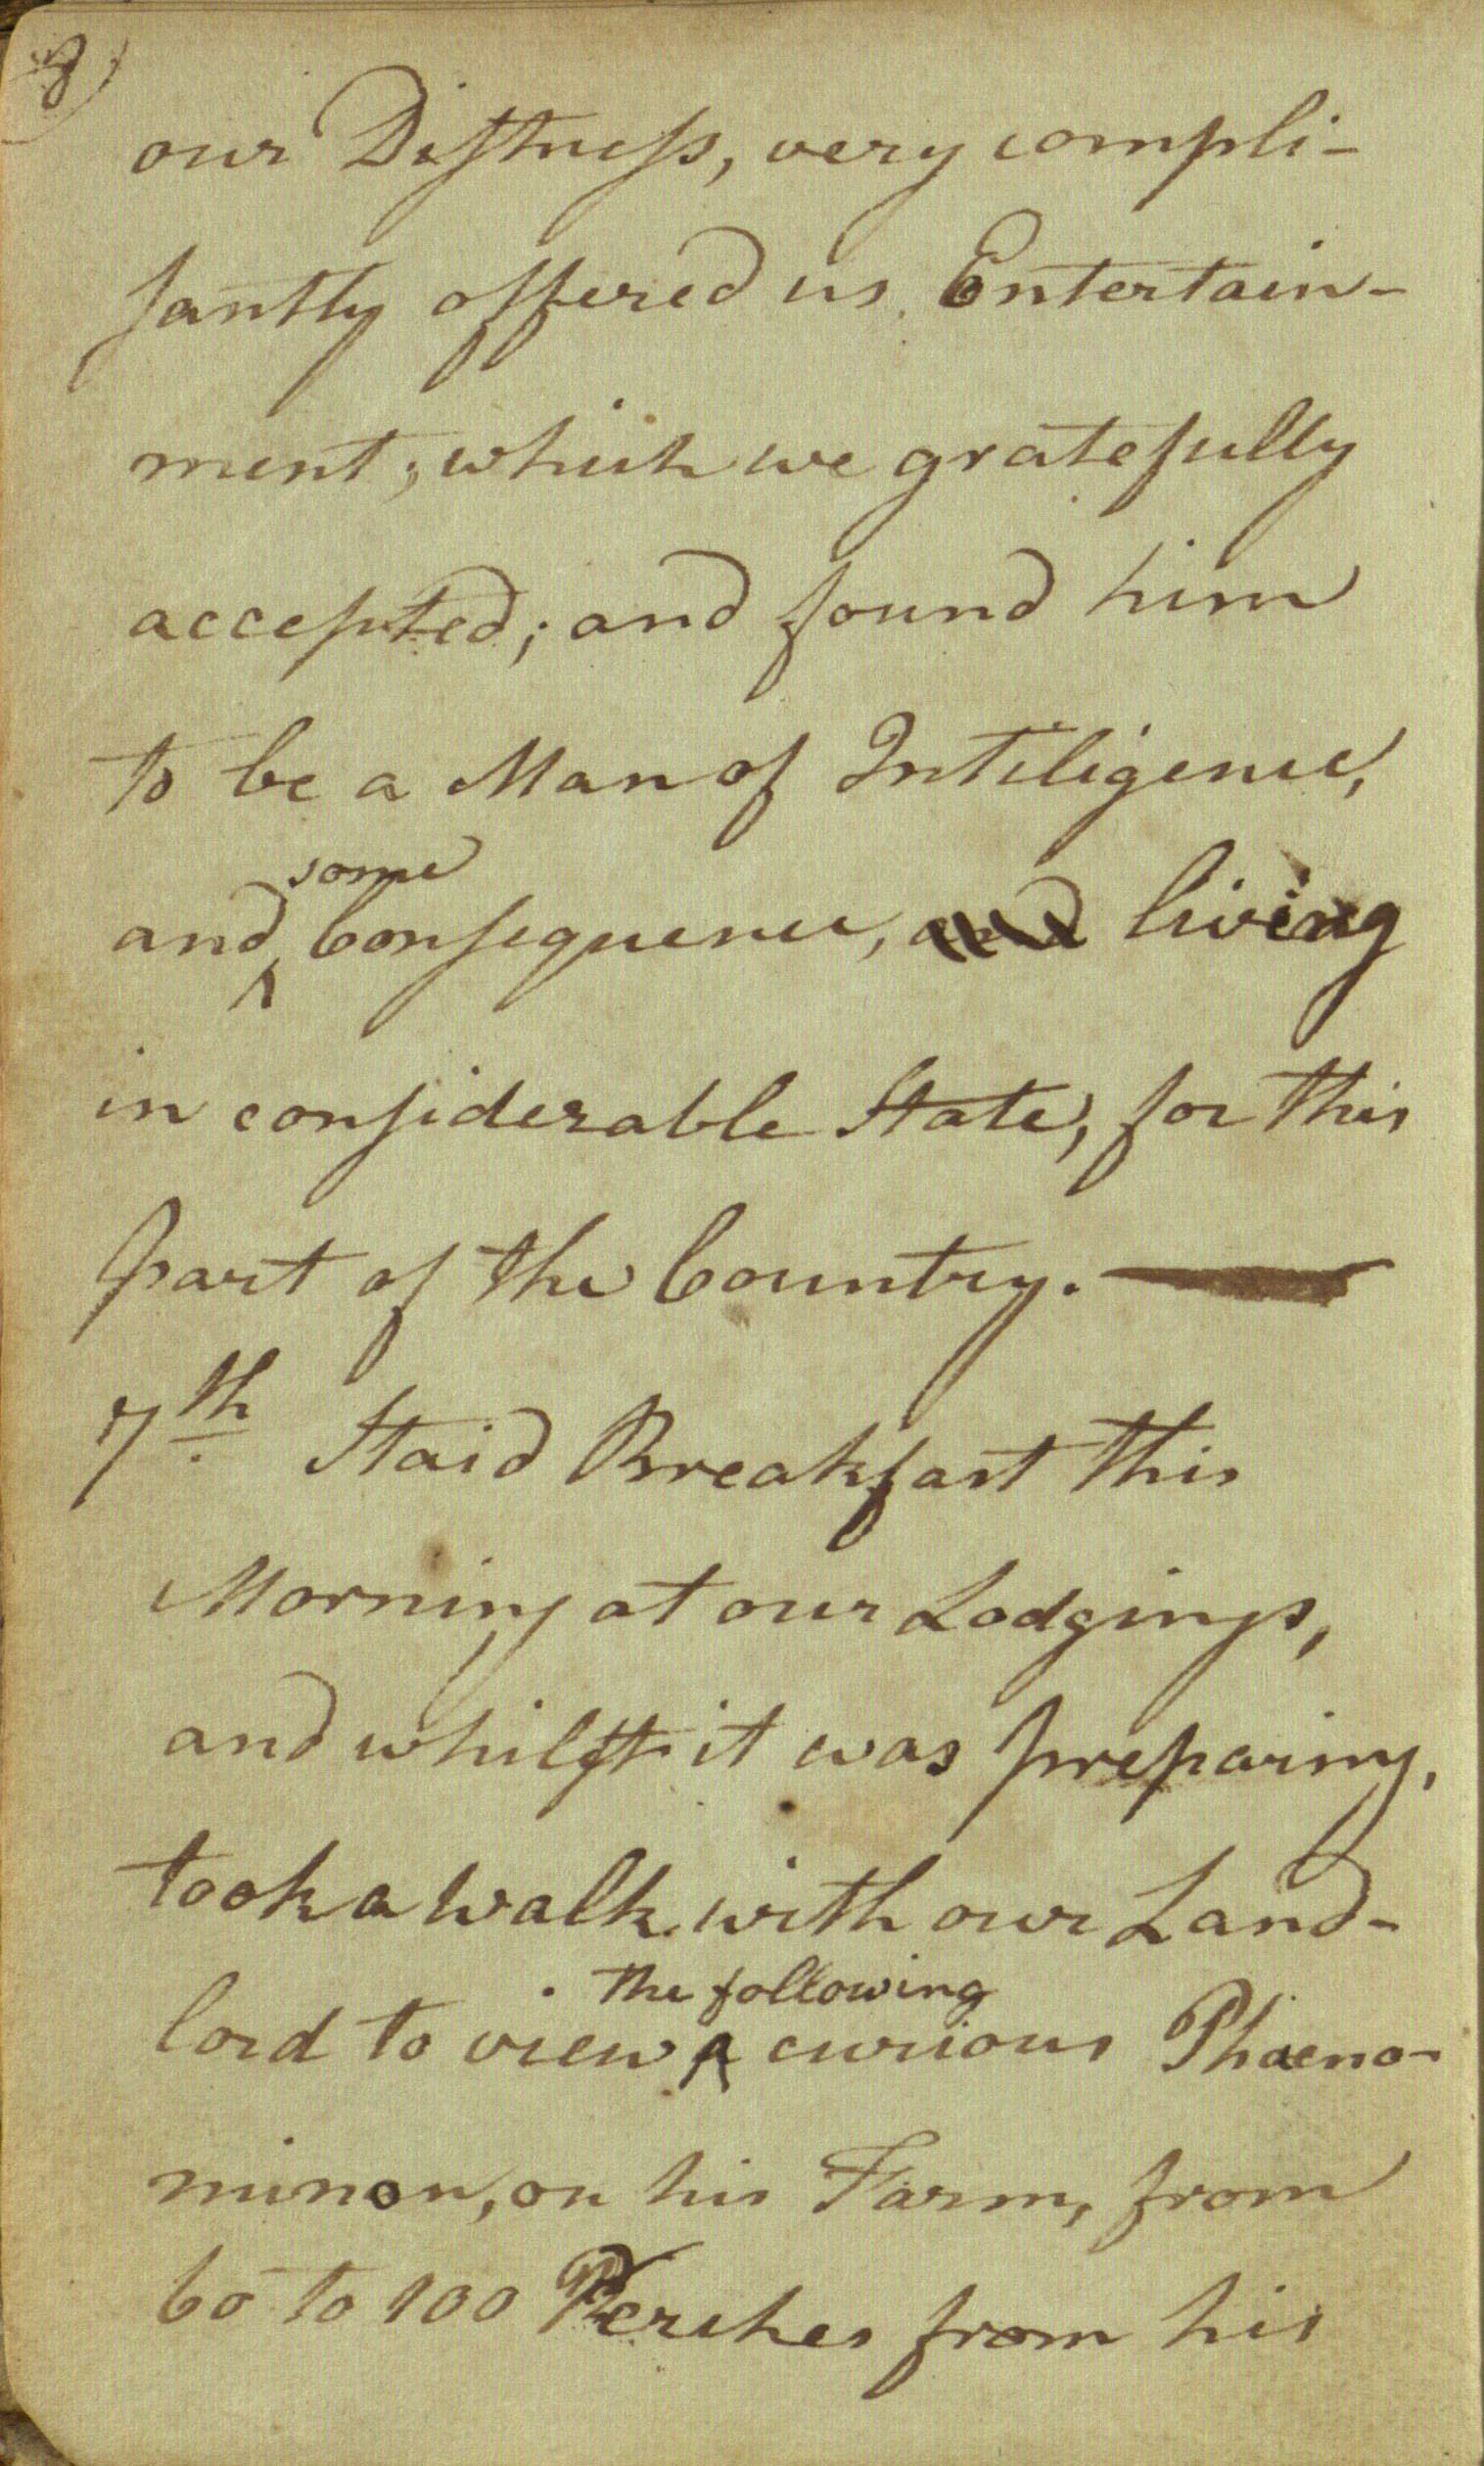 8)
our Distress, very compli-
santly offered us Entertain-
ment; which we gratefully
accepted; and found him
to be a Man of Inteligence,
some
and Consequence, and living
in considerable State, for this
part of the Country. —
7th Staid Breakfast this
Morning at our Lodgings,
and whilst it was preparing,
took a walk with our Land-
the following
lord to view curious Phæno-
minon, on his Farm, from
60 to 100 Perches from his